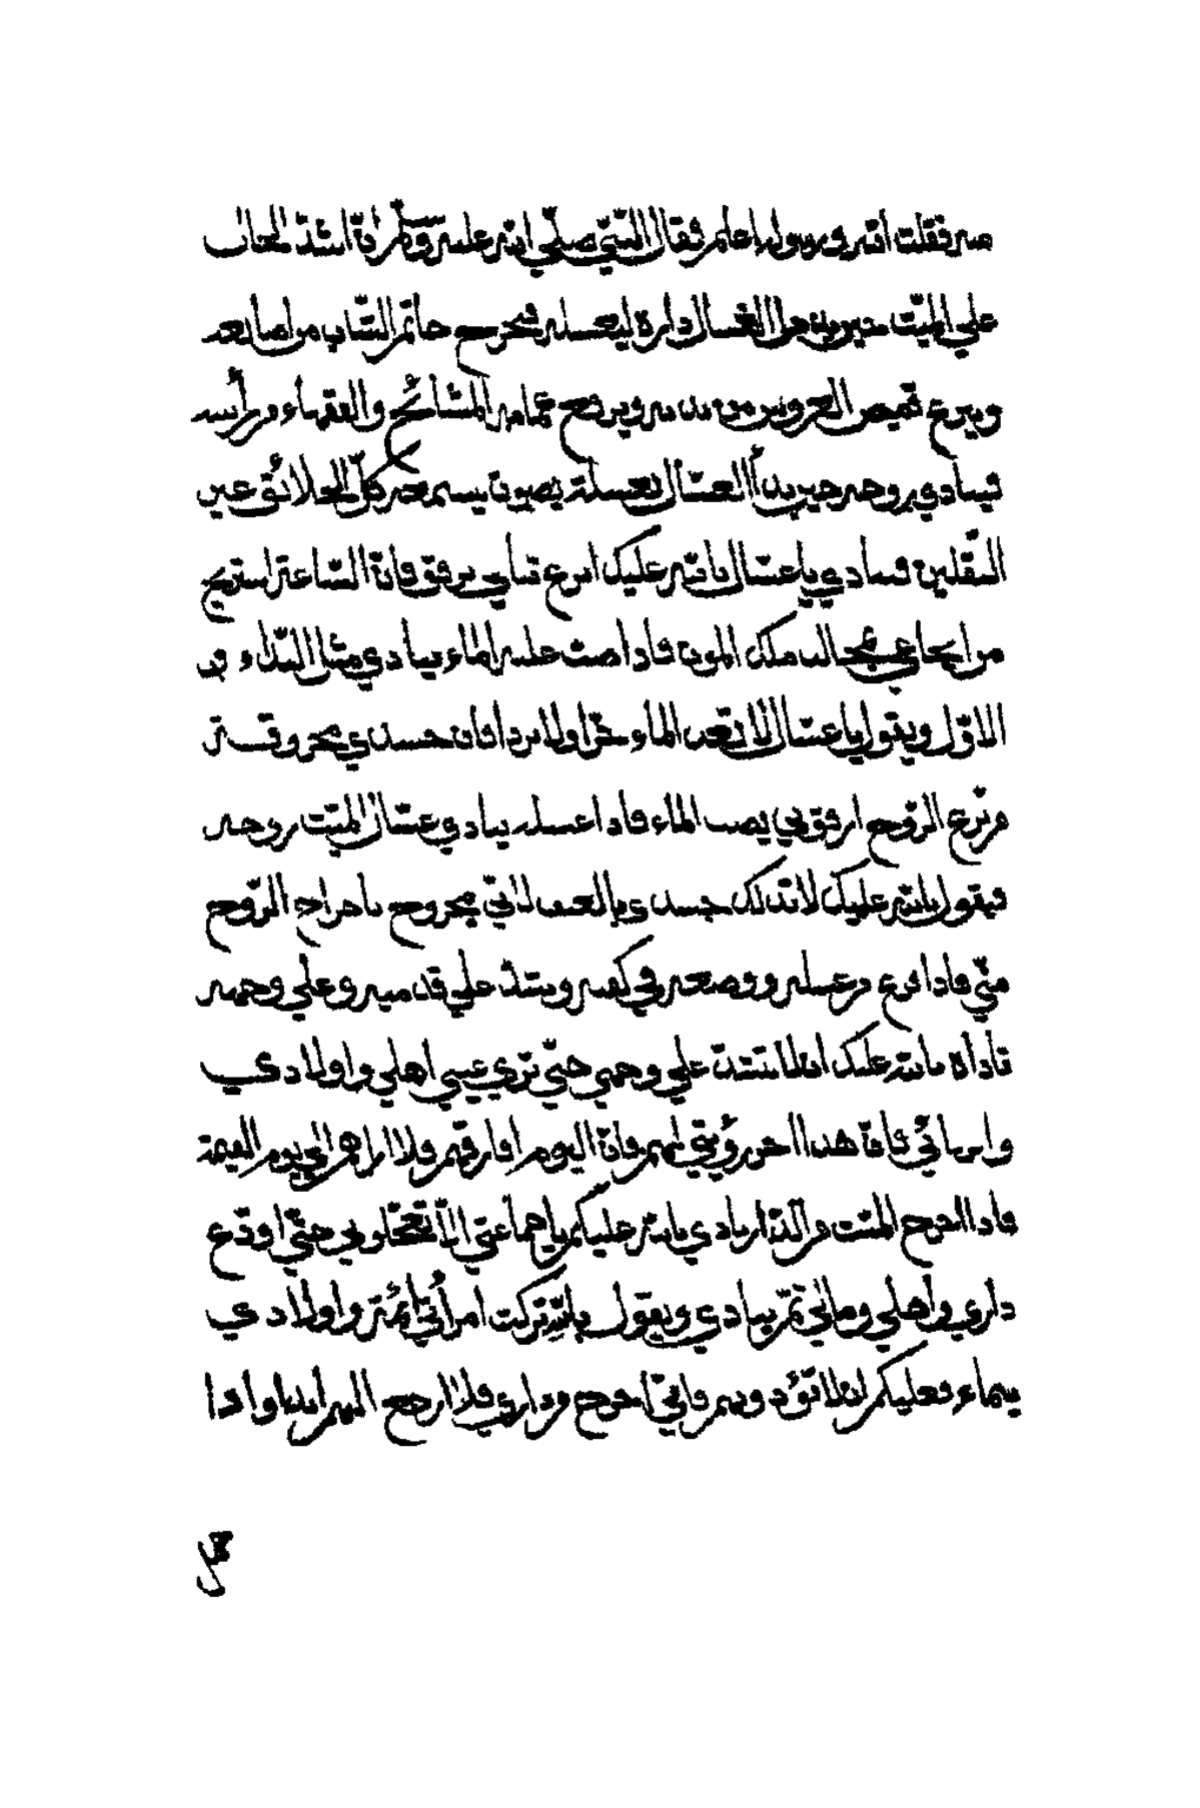 منه فقلت الله ورسوله اعلم فقال النّبيّ صلّي الله عليه وسلّم انّ اشدّ الحال
علي الميّت حين يدخل الغسال داره ليغسله فيخرج خاتم الشّاب من اصابعه
وينزع قميص العروس من بدنه ويرفع عمامة المشائخ والفقهاء من رأسه
فينادي روحه حين يدأ الغسّال بغسله بصوت يسمعه كلّ الخلائق غير
الثّقلين فينادي يا غسّال بالله عليك انزع ثيابي برفق فانّ السّاعة استريح
من مخالب ملك الموت فاذا صبّ عليه الماء ينادي مثل النّداء
الاوّل ويقول يا غسّال لا تصب الماء حرّا ولا بردا فان جسدي محروقة
من نزع الرّوح ارفق بي يصب الماء فاذا غسله ينادي غسّال الميّت روحه
فيقول بالله عليك لا تدلك جسدي بالعنف لانّي مجروح باخراج الرّوح
منّي فاذا فرغ من غسله ووضعه في كفنه وشدّ علي قدميه وعلي وجهه
ناداه بالله عليك ان لا تشدّ علي وجهي حتّي تري عيني اهلي واولادي
واقربائي فانّ هذا اخر رؤيتي لهم فانّ اليوم افارقهم ولا اراهم الي يوم القيمة
فاذا اخرج الميّت من الدّار ينادي بالله عليكم يا جماعتي لا تعجّلوني حتّي اودّع
داري واهلي ومالي ثمّ ينادي ويقول بالله تركت امرأتي ايّمة واولادي
يتماء فعليكم ان لا تؤذوهم فانّي اخرج من داري فلا ارجع اليهم ابدا واذا